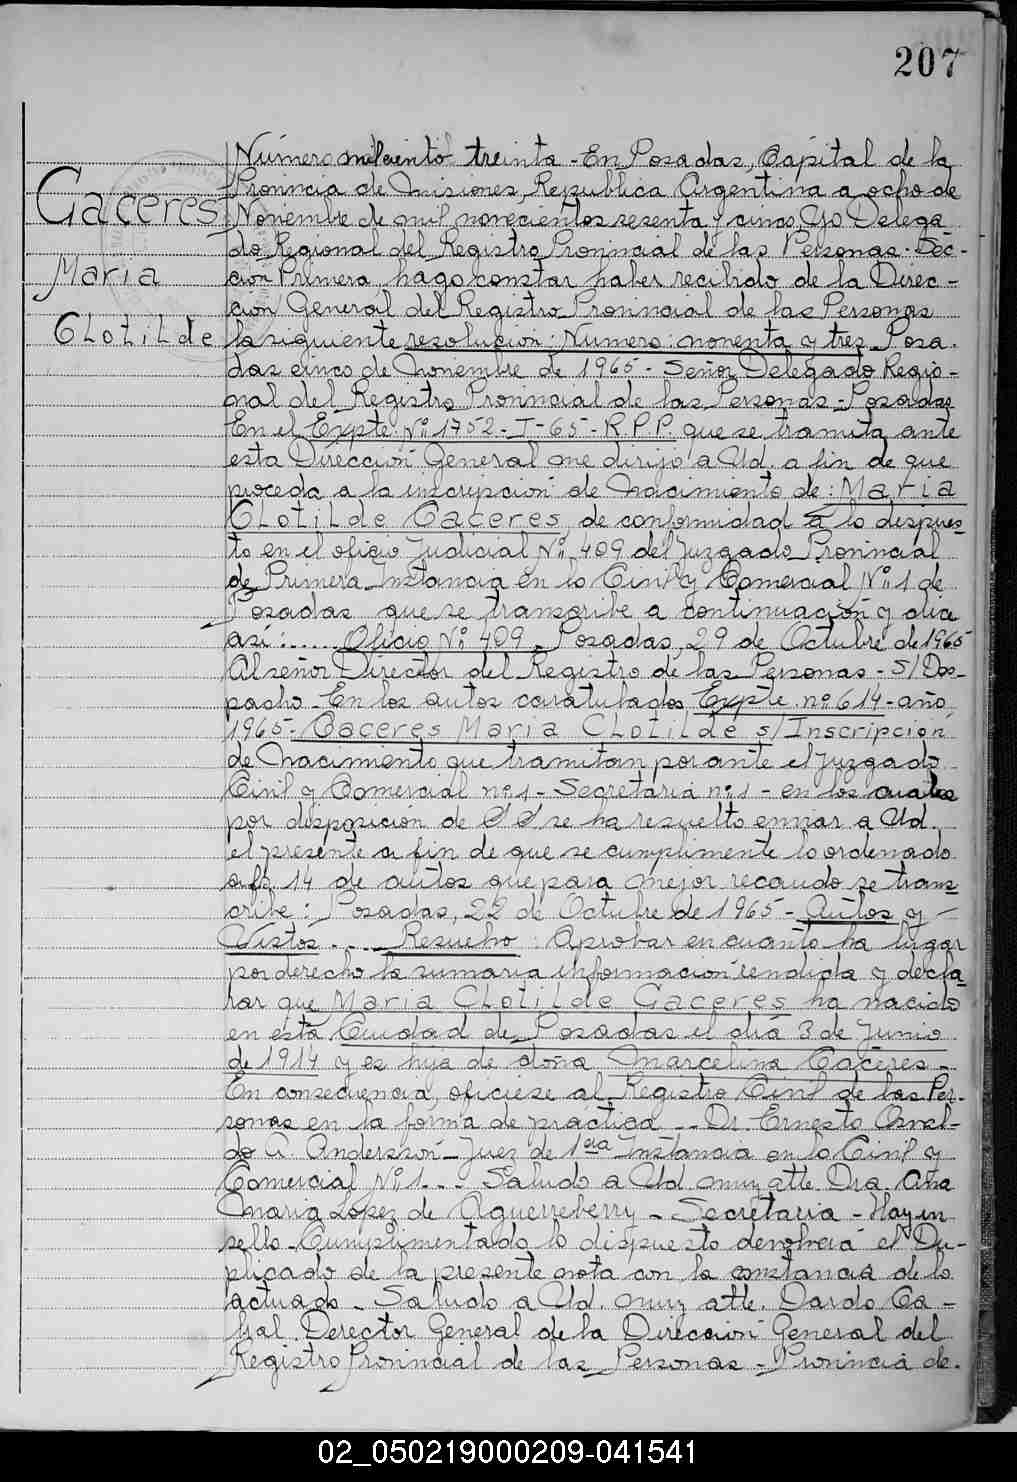 207
Caceres
Maria
Clotilde
Número mil ciento treinta - En Posadas, Capital de la
Provincia de Misiones, Republica Argentina a ocho de
Noviembre de mil novecientos sesenta y cinco, Yo Delega
do Regional del Registro Provincial de las Personas - Sec-
cion Primera hago constar haber recibido de la Direc-
cion General del Registro Provincial de las Personas
la siguiente resolucion: Numero: noventa y tres - Posa.
das cinco de Noviembre de 1965 - Señor Delegado Regio-
nal del Registro Provincial de las Personas - Posadas
En el Expte Nº 1752-I-65-R.P.P. que se tramita ante
esta Dirección General me dirijo a Ud. a fin de que
proceda a la inscripcion de Nacimiento de: Maria
Clotilde Caceres, de conformidad a lo dispues
to en el oficio Judicial Nº 409 del Juzgado Provincial
de Primera Instancia en lo Civil y Comercial Nº 1 de
Posadas que se transcribe a continuación y dice
así:...... Oficio Nº 409 - Posadas, 29 de Octubre de 1965
Al señor Director del Registro de las Personas - S/Des-
pacho - En los autos caratulados Expte. nº 614 - año
1965 - Caceres Maria Clotilde s/Inscripción
de Nacimiento que tramitan por ante el Juzgado
Civil y Comercial nº 1 - Secretaria nº 1 - en los cuales
por disposición de S S se ha resuelto enviar a Ud.
el presente a fin de que se cumplimente lo ordenado
a fs. 14 de autos que para mejor recaudo se trans
cribe: Posadas, 22 de Octubre de 1965 - Autos y
Vistos - .... Resuelvo: Aprobar en cuanto ha lugar
por derecho la sumaria información rendida y decla
rar que Maria Clotilde Caceres ha nacido
en esta Ciudad de Posadas el día 3 de Junio
de 1914 y es hija de doña Marcelina Caceres -
En consecuencia, ofíciese al Registro Civil de las Per-
sonas en la forma de práctica - - Dr. Ernesto Osval-
do A. Andersson - Juez de 1era Instancia en lo Civil y
Comercial Nº 1 - - - Saludo a Ud muy atte. Dra. Ana
Maria Lopez de Aguerreberry - Secretaria - Hay un
sello - Cumplimentado lo dispuesto devolverá el Du-
plicado de la presente nota con la constancia de lo
actuado - Saludo a Ud. muy atte. Dardo Ca-
bral. Derector General de la Dirección General del
Registro Provincial de las Personas - Provincia de.
02_050219000209-041541